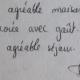 agréable maison
avec goût
agréable séjour.